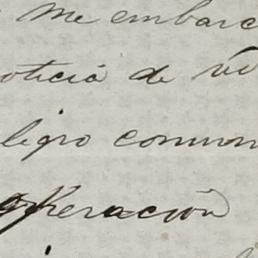 me embarc
oticia de vi
ligro comun
operación